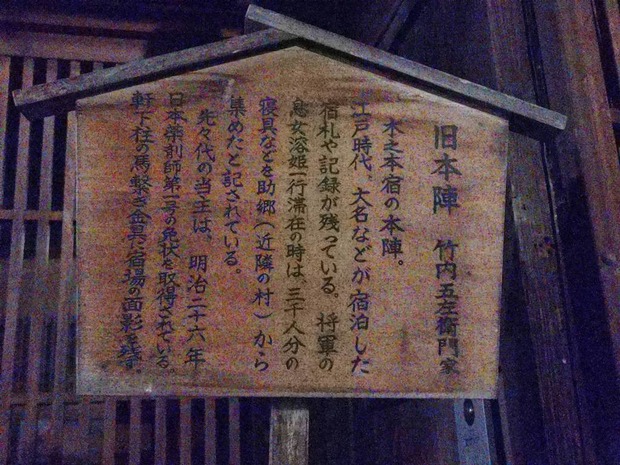 旧本陣 竹内五左衛門家
木之本宿の本陣。
江戸時代、大名などが宿泊した
宿札や記録が残っている。将軍の
息女溶姫一行滞在の時は、三千人分の
寝具などを助郷(近隣の村)から
集めたと記されている。
先々代の当主は、明治二十六年
日本薬剤師第一号の免状を取得されている。
軒下柱の馬繋ぎ金具に宿場の面影を残す